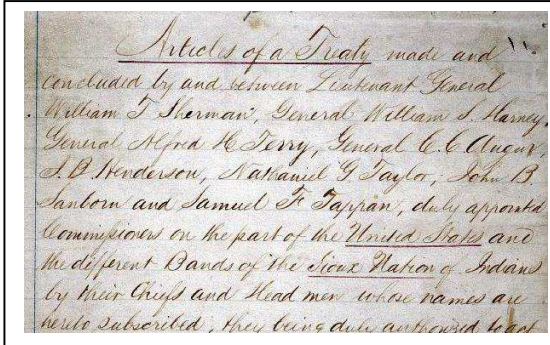 Articles of a Treaty made and
concluded by and between Lieutenant General
William T Sherman, General William S. Harney,
General Alfred H Terry, General C. C Augur,
J. B. Henderson, Nathaniel G Taylor, John B.
Sanborn and Samuel F Tappan, duly appointed
Commissioners on the part of the United States and
the different Bands of the Sioux Nation of Indians
by their Chiefs and Head men whose names are
hereto subscribed, they being duly authorized to act